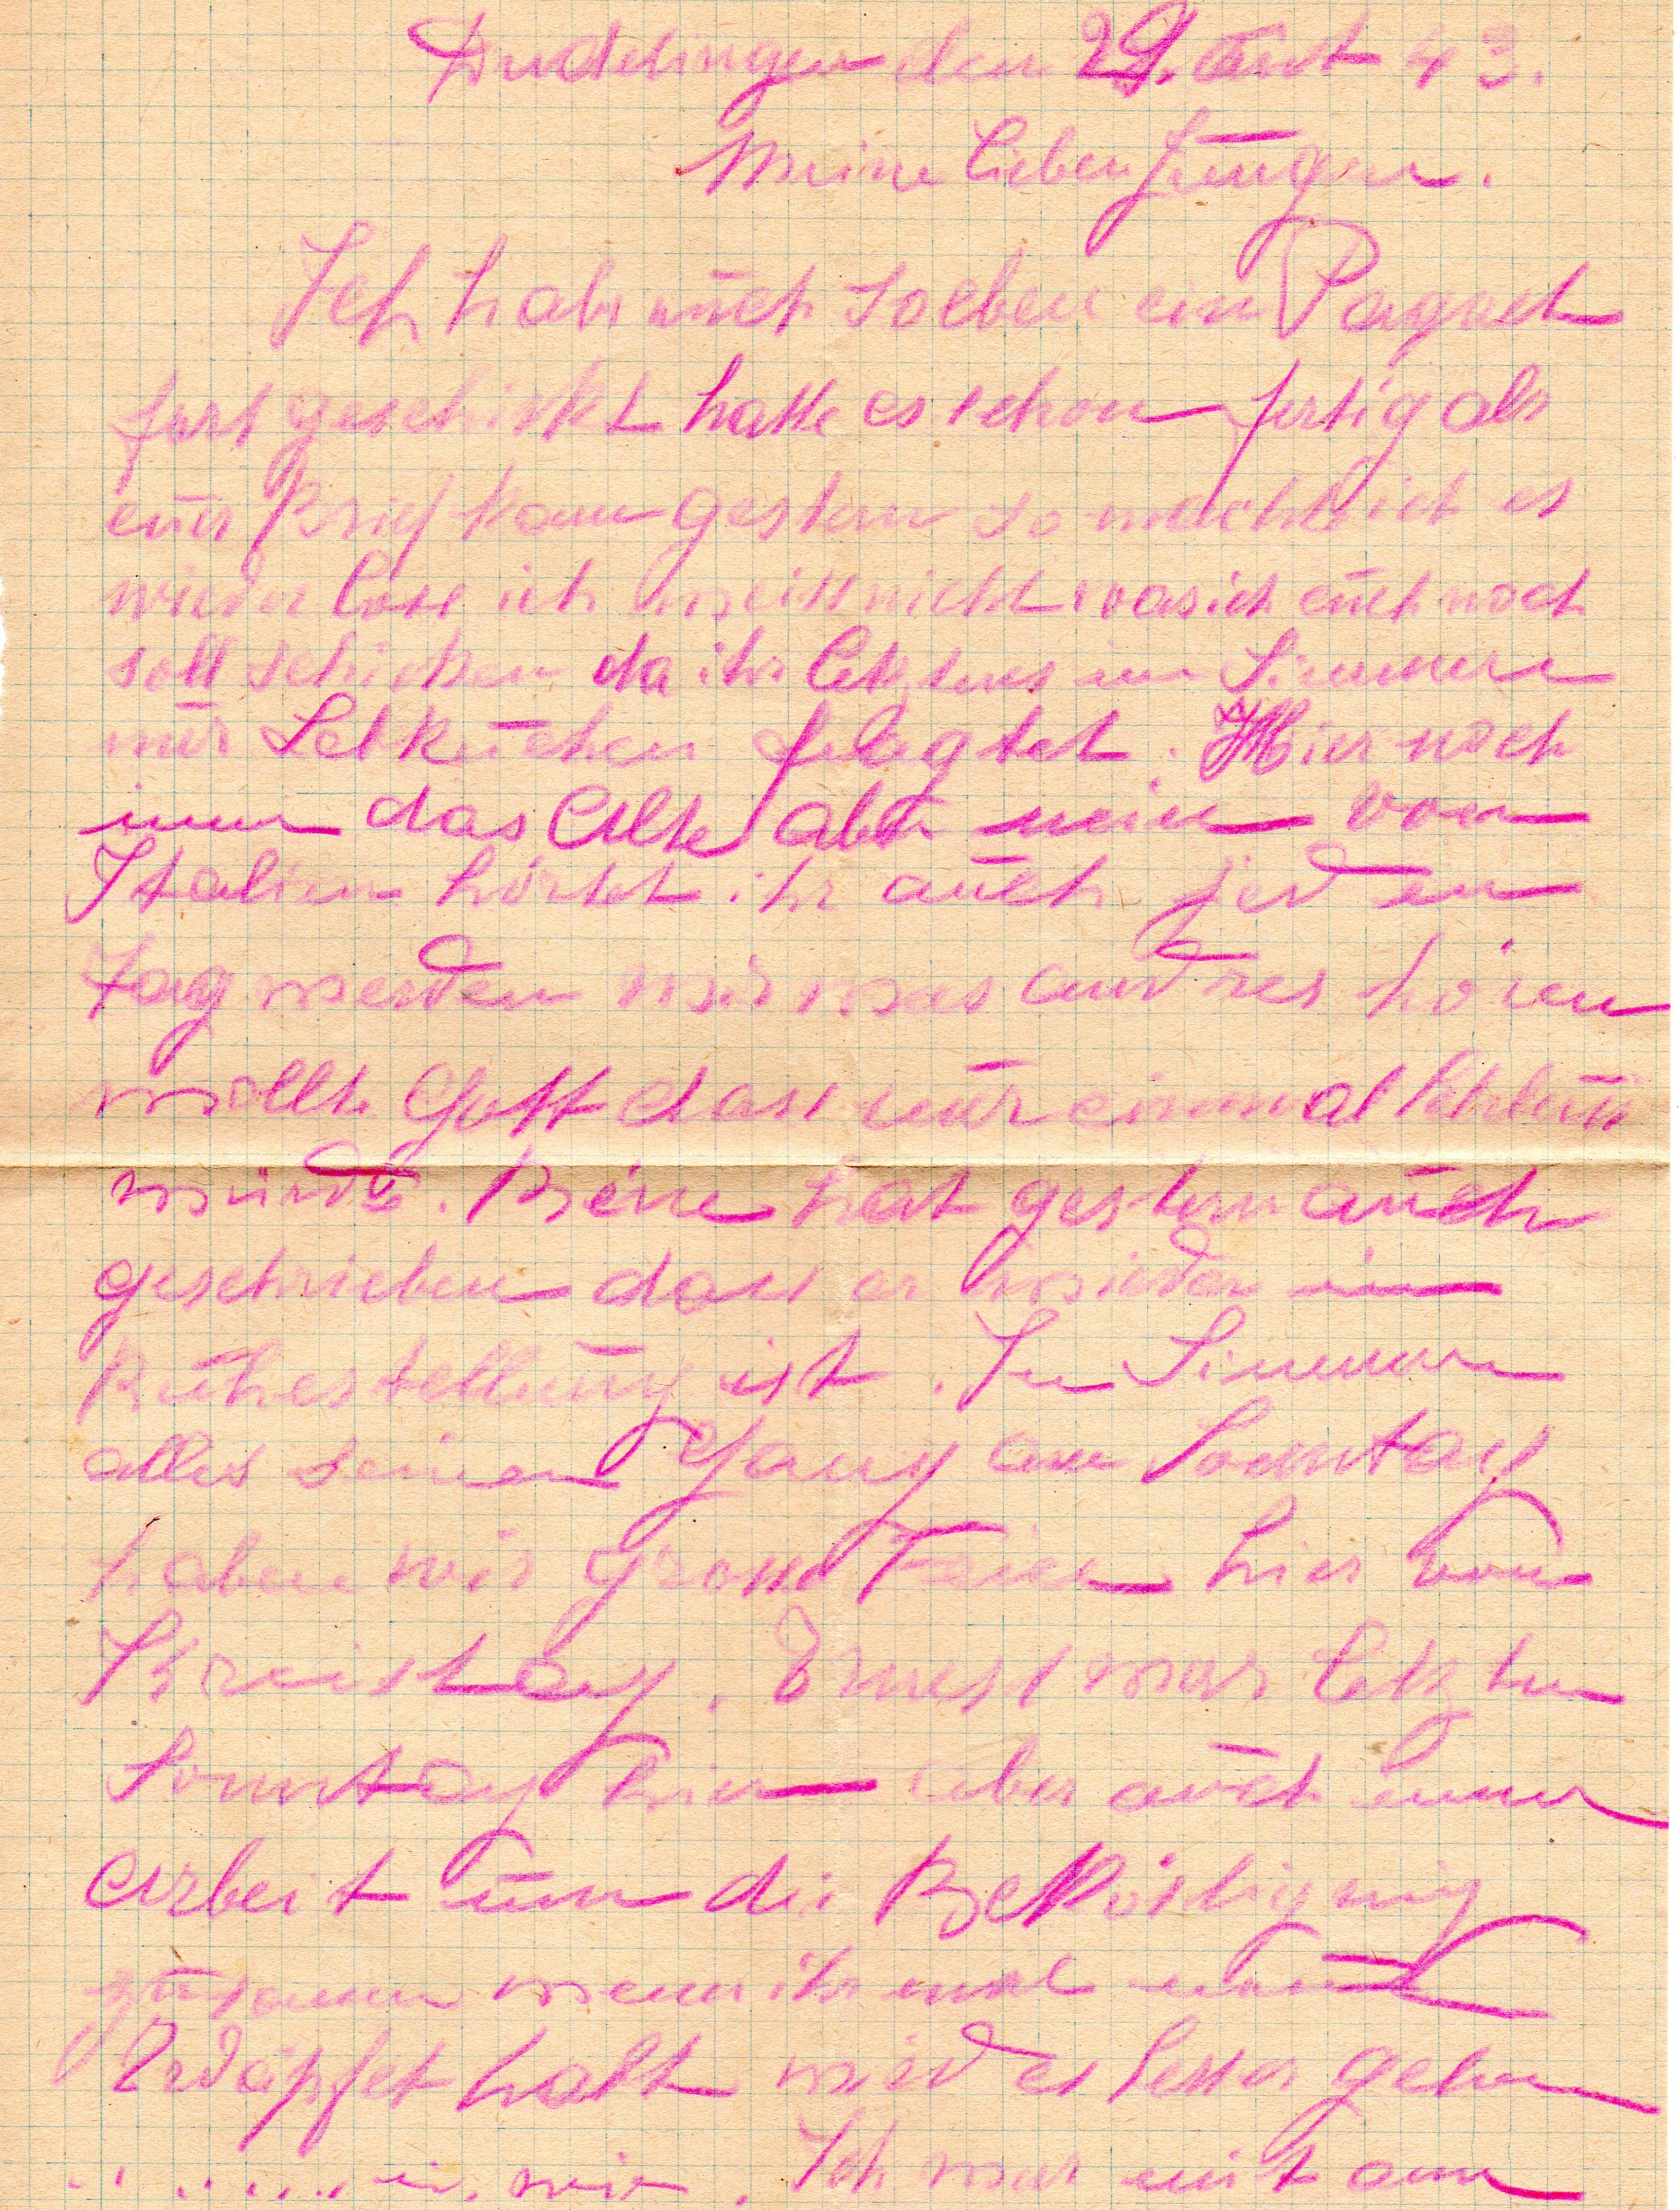 Düdelingen den 29. Aut 43.
Meine lieben Jungen.
Ich habe euch soeben ein Pagaet
fort geschickt hatte es schon fertig als
euer Brief kam gestern so machte ich es
wieder loss ich weiss nicht was ich euch noch
soll schicken da ihr letztens in Simmern
nur Lebkuchen
Hier noch
immer das Alte aber nein von
Italien hörtet ihr auch jeden
Tag werden wir was andres hören
wollte Gott dass nur einmal Schluss
würde. hat gestern auch
geschrieben dass er wieder in
Ruhestellung ist. In Simmern
alles seinen Gang am Sonntag
haben wir grosse Feier hier vom
Kreistag. Ernest war letzten
Sonntag hier aber auch immer
Arbeit um die Beköstigung
zusammen wenn ihr mal
Erdäpfel habt wird es besser gehen
wir. Ich war mit am